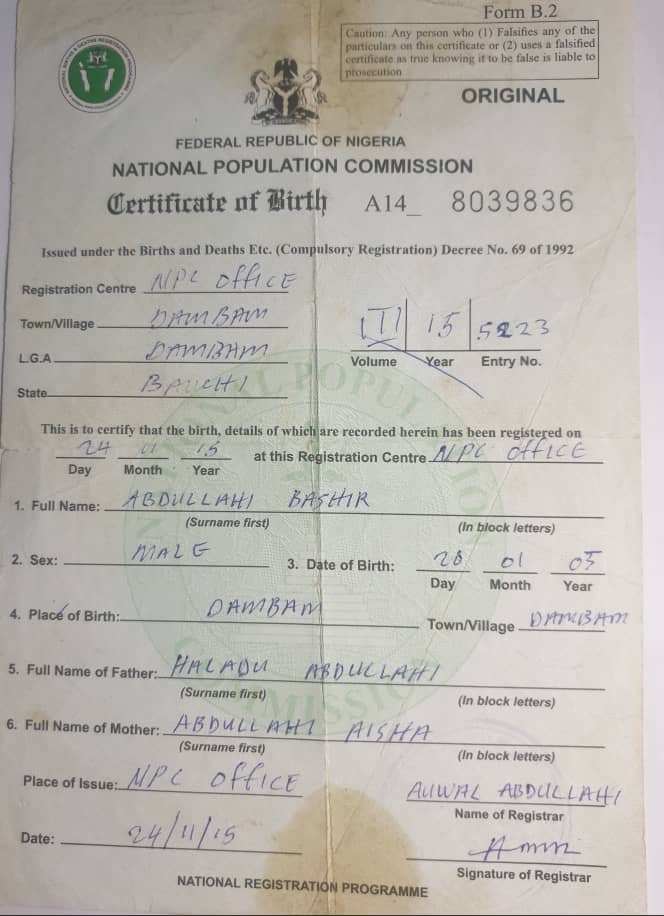 Form B.2
Caution: Any person who (1) Falsifies any of the
particulars on this certificate or (2) uses a falsified
certificate as true knowing it to be false is liable to
prosecution
ORIGINAL
FEDERAL REPUBLIC OF NIGERIA
NATIONAL POPULATION COMMISSION
Certificate of Birth A14_ 8039836
Issued under the Births and Deaths Etc. (Compulsory Registration) Decree No. 69 of 1992
Registration Centre NPC OFFICE
Town/Village DAMBAM
L.G.A DAMBAM
State BAUCHI
III 15 5223
Volume Year Entry No.
This is to certify that the birth, details of which are recorded herein has been registered on
24 11 15 at this Registration Centre NPC OFFICE
Day Month Year
1. Full Name: ABDULLAHI BASHIR
(Surname first) (In block letters)
2. Sex: MALE 3. Date of Birth: 28 01 05
Day Month Year
4. Place of Birth: DAMBAM Town/Village DAMBAM
5. Full Name of Father: HALADU ABDULLAHI
(Surname first) (In block letters)
6. Full Name of Mother: ABDULLAHI AISHA
(Surname first) (In block letters)
Place of Issue: NPC OFFICE AUWAL ABDULLAHI
Name of Registrar
Date: 24/11/15
Signature of Registrar
NATIONAL REGISTRATION PROGRAMME